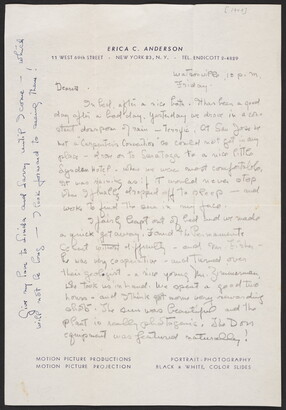 [1952]
ERICA C. ANDERSON
YY WEST 69TH STREET · NEW YORK 23, N. Y. · TEL. ENDICOTT 2-6559
10 p.m.
Friday.
Dearest
In bed, after a nice bath. It has been a good
day after a bad day. Yesterday we drove in a con-
stant downpour of rain - terrific. At San Jose
not a Carpenteria Convention we could not get any
place - drove on to Saratoga to a nice little
motel. When we were most comfortable,
it was raining as if it would never stop
when I finally dropped off to sleep - and
woke to find the sun in my face.
I fairly leapt out of bed and we made
a quick get away. Found the Permanente
plant without difficulty - and
he was very cooperative - and turned over
their geologist - a nice young Mr. Zimmerman
who took us in hand. We spent a good two
hours - and I think got some very rewarding
shots. The sun was beautiful and the
plant is really photogenic. The Dorr
equipment was featured naturally!
Give my love to Linda and Larry until I come - which
will not be long - I look forward to seeing them!
MOTION PICTURE PRODUCTIONS
MOTION PICTURE PROJECTION
PORTRAIT-PHOTOGRAPHY
BLACK & WHITE, COLOR SLIDES